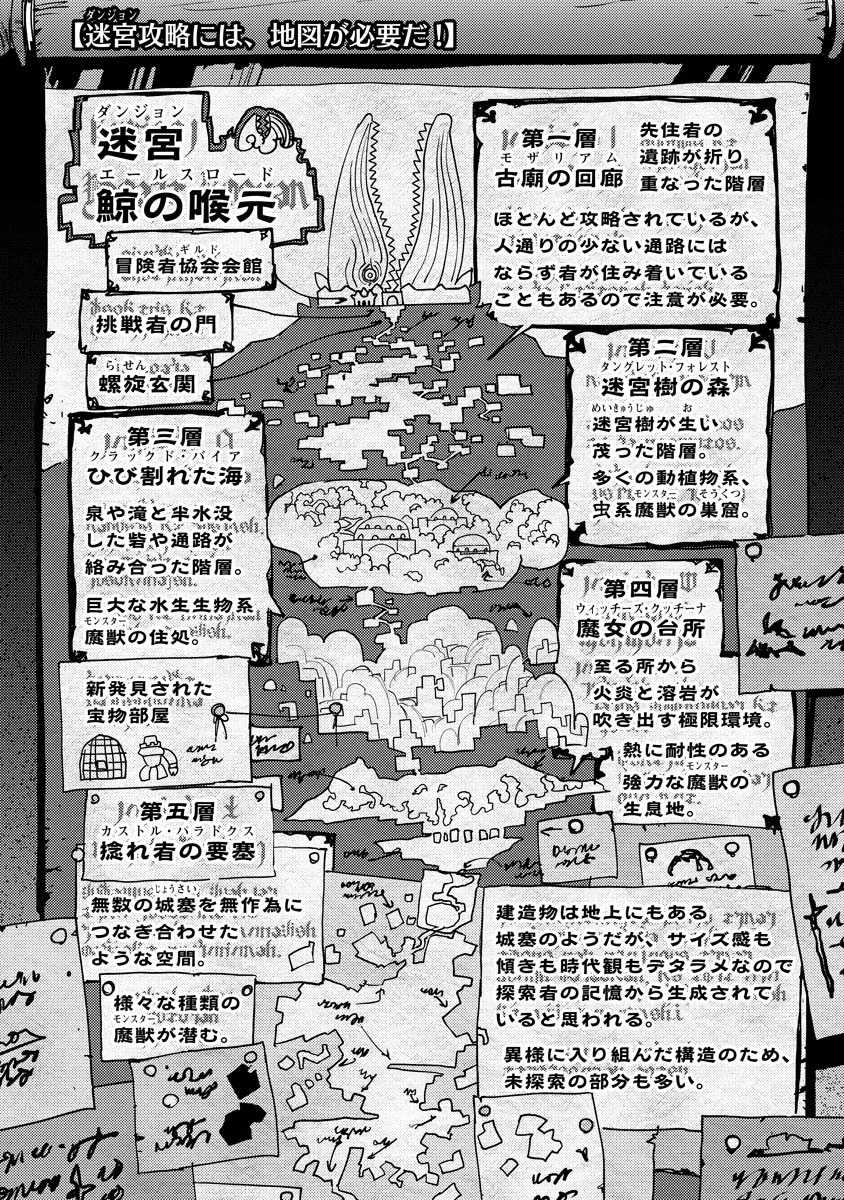 【迷宮攻略には、地図が必要だ!】
ダンジョン
迷宮
ダンジョン
鯨の喉元
エールスロード
冒険者協会会館
ギルド
挑戦者の門
螺旋玄関
らせん
第一層
古廟の回廊
モザリアム
先住者の
遺跡が折り
重なった階層
ほとんど攻略されているが、
人通りの少ない通路には
ならず者が住み着いている
こともあるので注意が必要。
第二層
迷宮樹の森
タングレット・フォレスト
迷宮樹が生い
めいきゅうじゅ お
茂った階層。
多くの動植物系、
虫系魔獣の巣窟。
モンスター そうくつ
第三層
ひび割れた海
クラックド・バイア
泉や滝と半水没
した砦や通路が
絡み合った階層。
巨大な水生生物系
魔獣の住処。
モンスター
第四層
魔女の台所
ウィッチーズ・クッチーナ
至る所から
火炎と溶岩が
吹き出す極限環境。
熱に耐性のある
強力な魔獣の
モンスター
生息地。
新発見された
宝物部屋
第五層
捻れ者の要塞
カストル・パラドクス
無数の城塞を無作為に
じょうさい
つなぎ合わせた
ような空間。
様々な種類の
魔獣が潜む。
モンスター
建造物は地上にもある
城塞のようだが、サイズ感も
傾きも時代観もデタラメなので
探索者の記憶から生成されて
いると思われる。
異様に入り組んだ構造のため、
未探索の部分も多い。